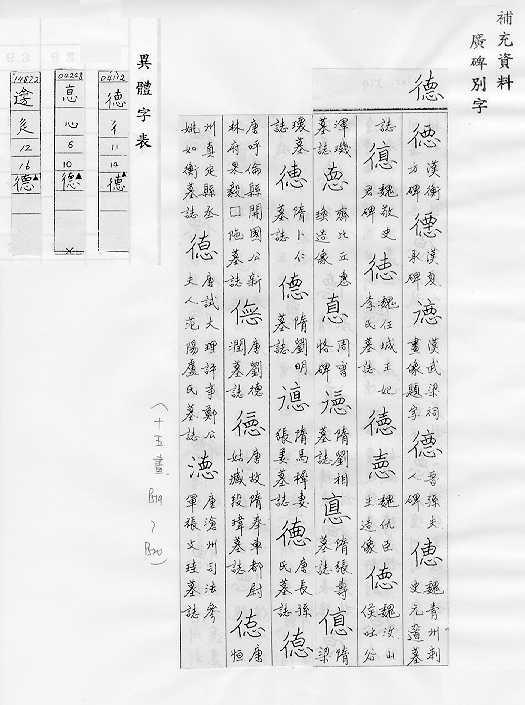 補充資料
廣碑別字
德
德 漢衡方碑 德 漢夏承碑 德 漢武梁祠畫像題字 德 晉孫夫人碑 德 魏青州刺史元遵墓
誌 德 魏敬史君碑 德 魏任城王妃李氏墓誌 德 德 魏仇臣生造像 德 魏汶山侯吐谷
渾璣墓誌 德 齊比丘惠瑍造像 德 周曹恪碑 德 隋劉相墓誌 德 隋張壽墓誌 德 隋梁
瓌墓誌 德 隋卜仁墓誌 德 隋劉明墓誌 德 隋馬穉妻張姜墓誌 德 唐長孫氏墓誌 德
唐呼倫縣開國公新林府果毅□陁墓誌 德 唐劉德潤墓誌 德 唐故隋奉車都尉姑臧段瑋墓誌 德 唐恒
州真定縣丞姚如衡墓誌 德 唐試大理評事鄭公夫人范陽盧氏墓誌 德 唐滄州司法參軍張文珪墓誌
(十五畫 P319 ~ P320)
異體字表
04112
德
彳
11
14
德
04268
悳
心
8
10
德
×
14822
辵
12
16
德